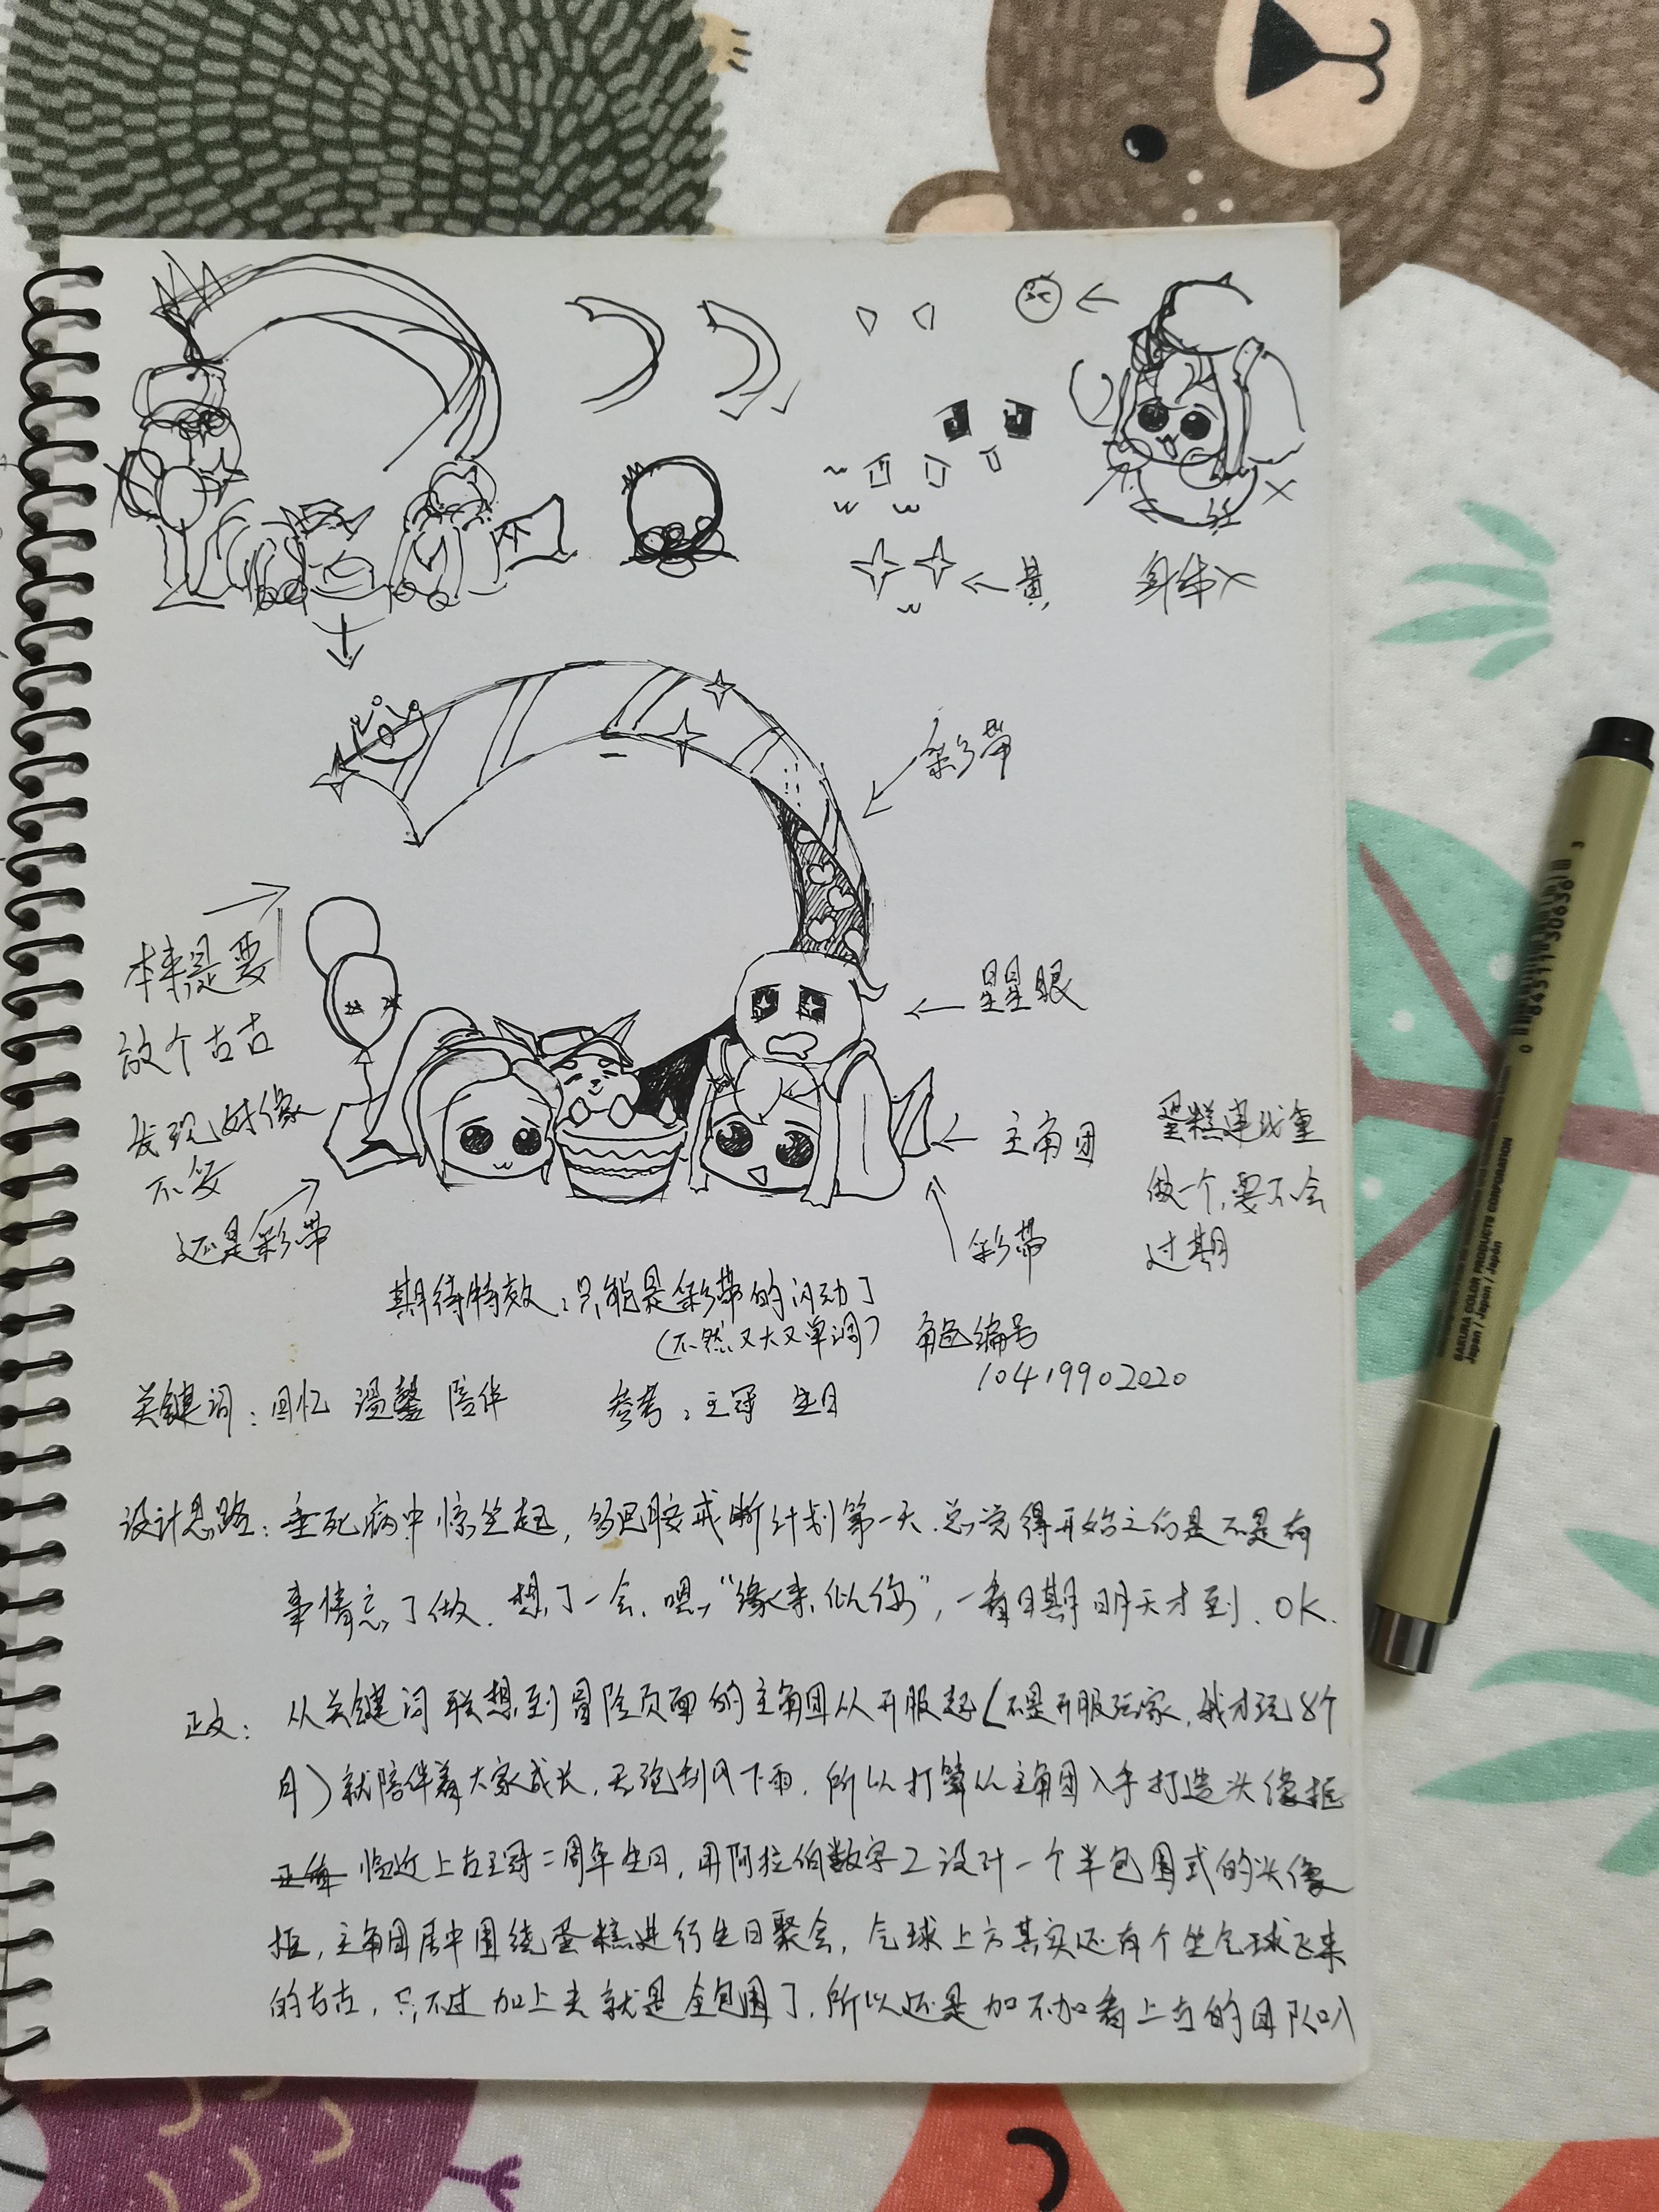 黄
身体×
彩带
本来是要
放个古古
发现好像
不妥
还是彩带
星星眼
主角团
彩带
蛋糕建议重
做一个,要不会
过期
期待特效:只能是彩带的闪动了
(不然又大又单调)
角色编号
10419902020
关键词:回忆 温馨 陪伴
参考:王冠 生日
设计思路:垂死病中惊坐起,多巴胺戒断计划第一天.总觉得开始之前是不是有
事情忘了做.想了一会,嗯,“缘来似你”,一看日期明天才到.OK.
正文:从关键词联想到冒险页面的主角团从开服起(不是开服玩家,我才玩8个
月)就陪伴着大家成长,无论刮风下雨.所以打算从主角团入手打造头像框
临近上古王冠二周年生日,用阿拉伯数字2设计一个半包围式的头像
框,主角团居中围绕蛋糕进行生日聚会,气球上方其实还有个坐气球飞来
的古古,只不过加上去就是全包围了,所以还是加不加看上古的团队叭
SAKURA COLOR PRODUCTS CORPORATION
Japan / Japon / Japón